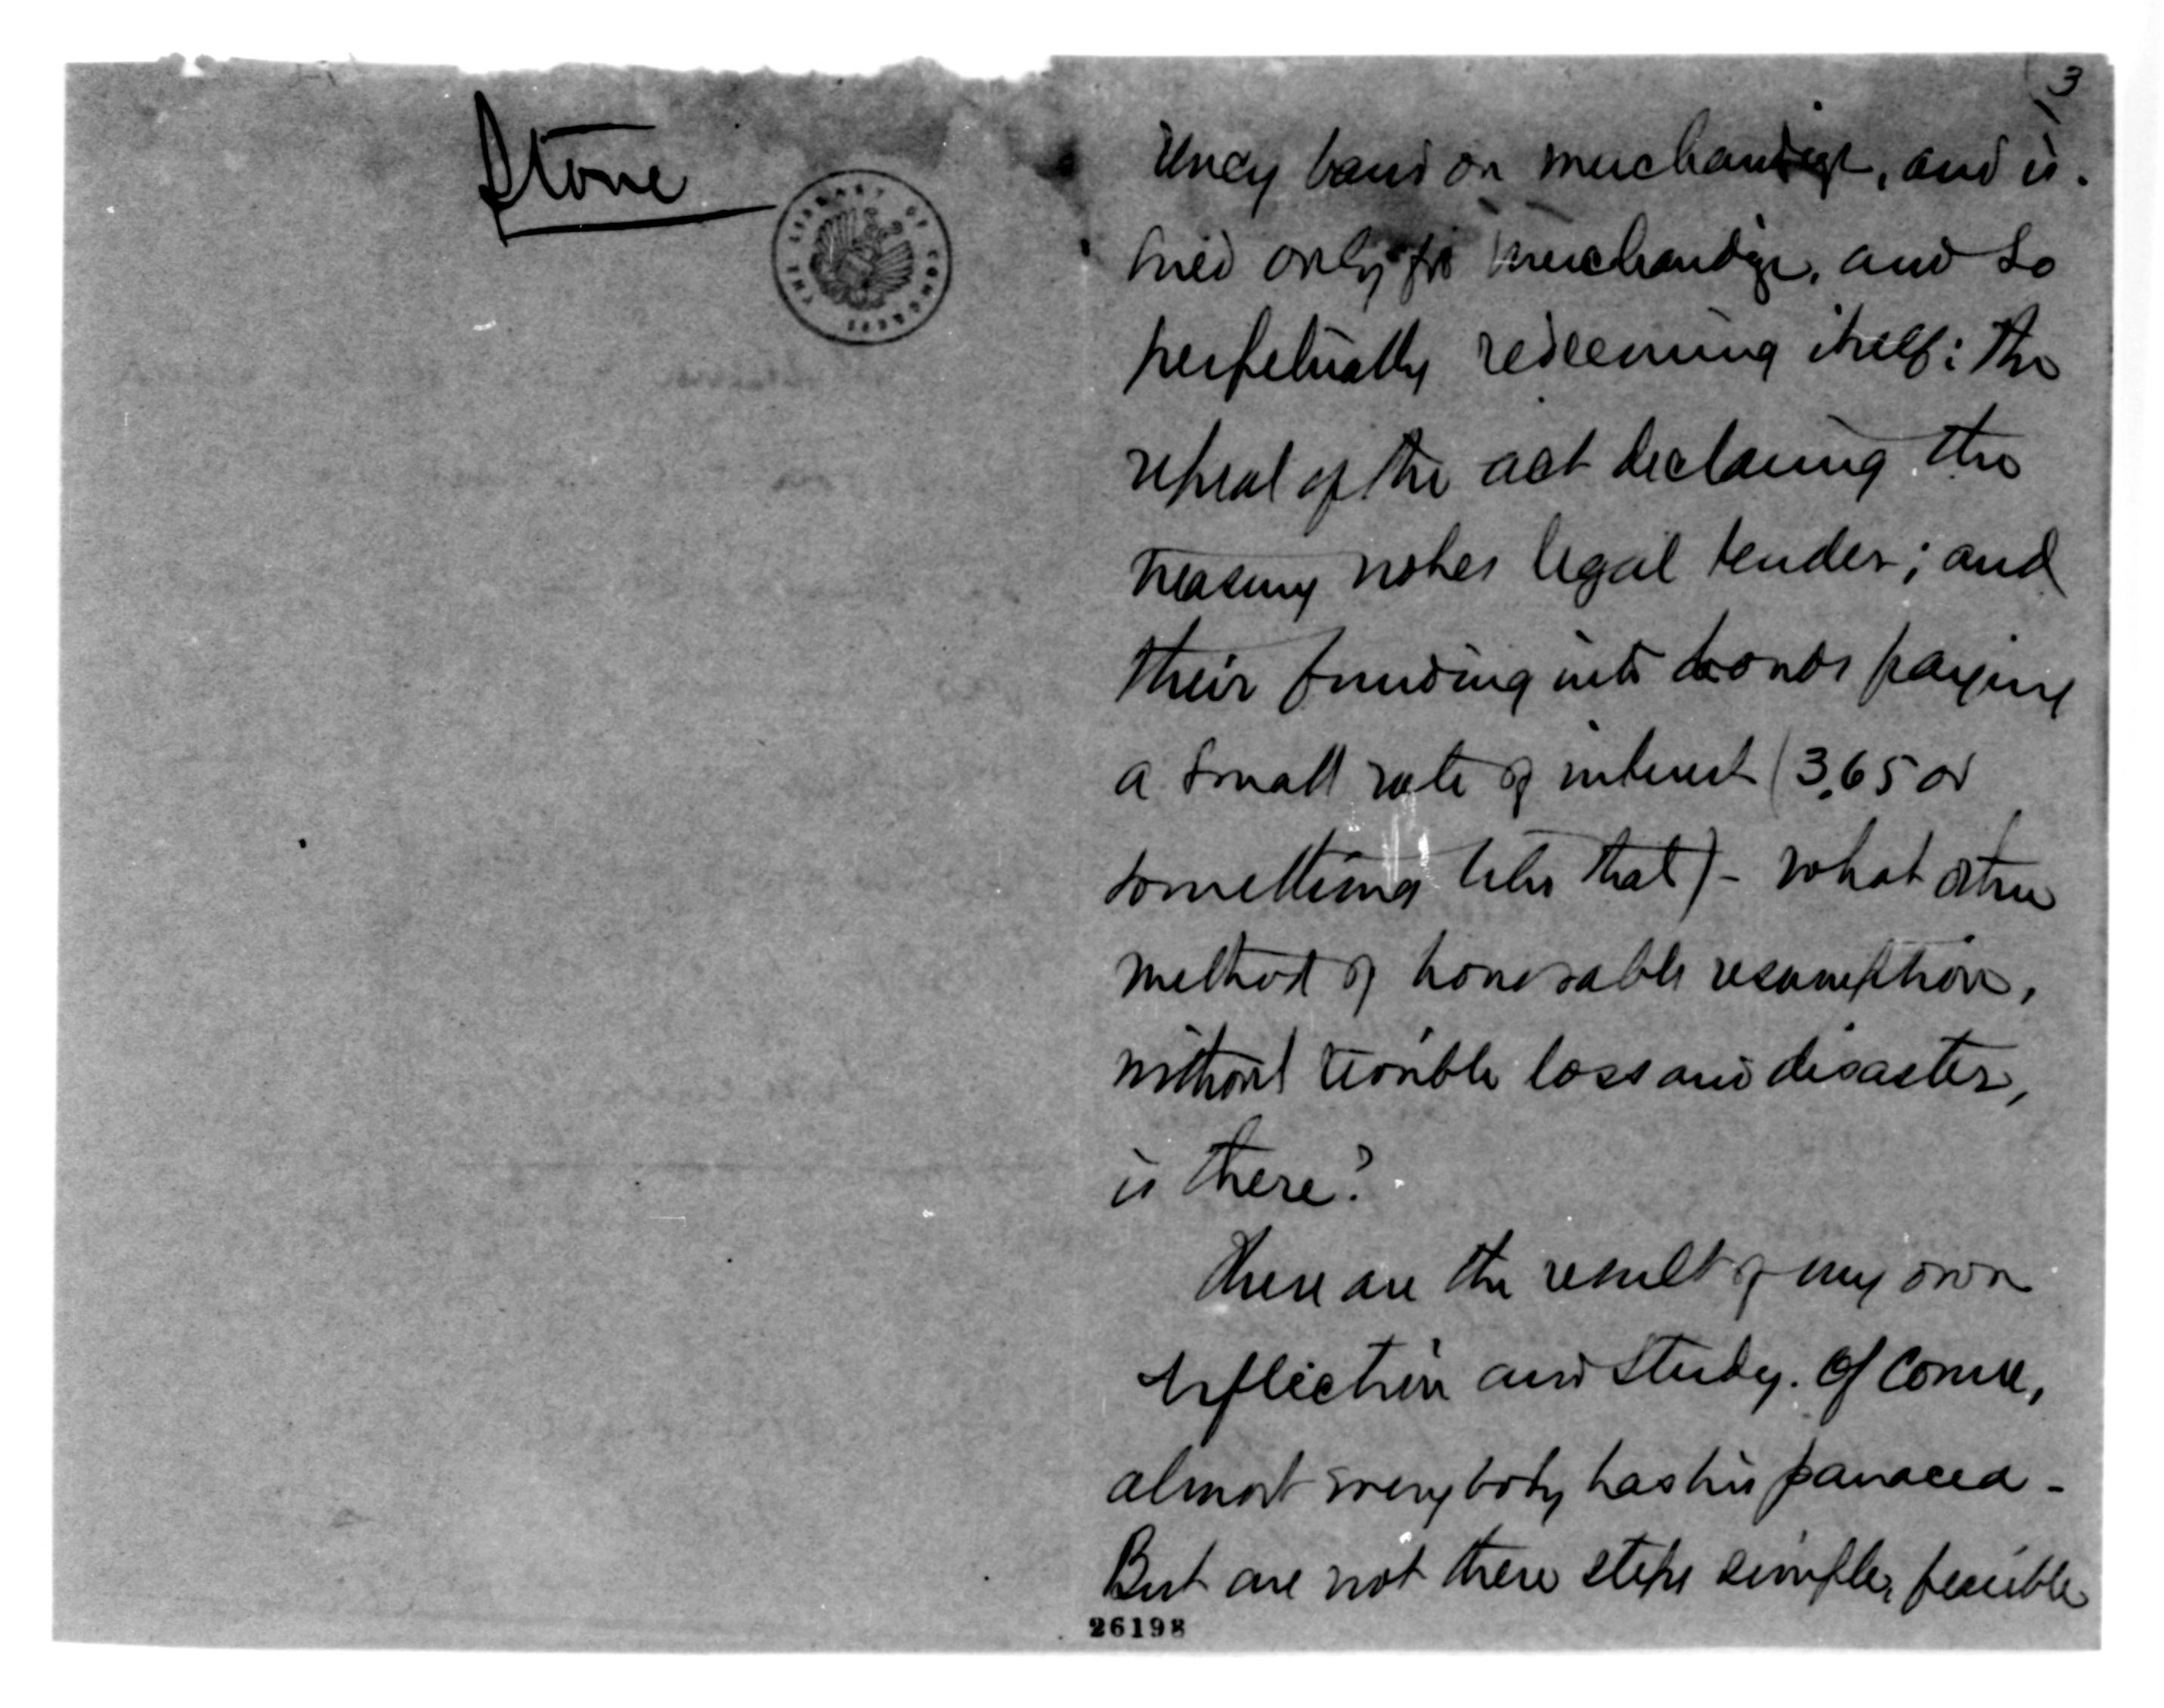 Stone
THE LIBRARY OF CONGRESS
3
rency based on merchandize, and is-
sued only for merchandize, and so
perpetually redeeming itself: the
repeal of the act declaring the
treasury notes legal tender; and
their funding into bonds paying
a small rate of interest (3.65 or
something like that) - what other
method of honorable resumption,
without terrible loss and disaster,
is there?
These are the result of my own
reflection and study. Of course,
almost everybody has his panacea -
But are not these steps simple, feasible
26198